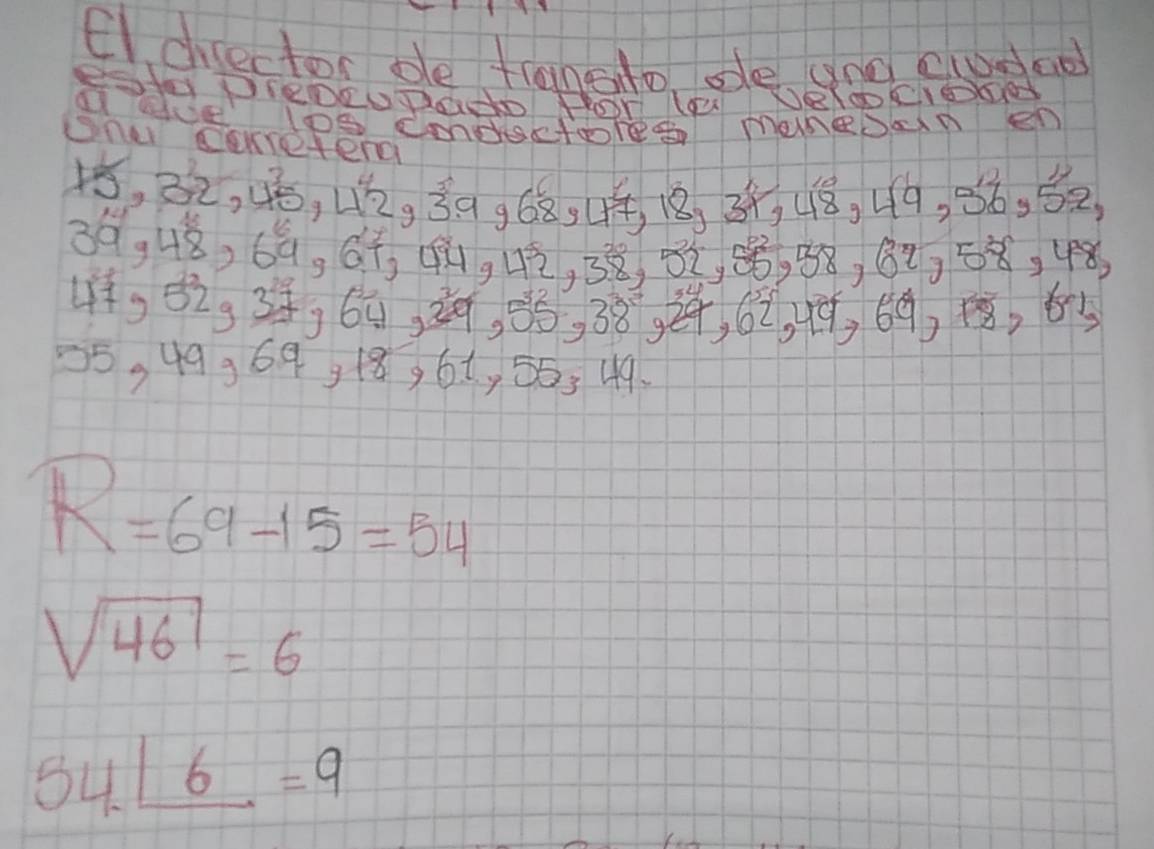 El director de transito de una ciudad
esta preocupado por la velocidad
a que los conductores manejan en
una carretera
15, 32, 45, 42, 39, 68, 47, 18, 31, 48, 49, 56, 52,
39, 48, 69, 61, 44, 42, 38, 52, 55, 58, 62, 58, 48,
47, 52, 37, 64, 29, 55, 38, 29, 62, 49, 69, 18, 61,
55, 49, 69, 18, 61, 55, 49.
R = 69 - 15 = 54
√46 = 6
54 | 6 = 9